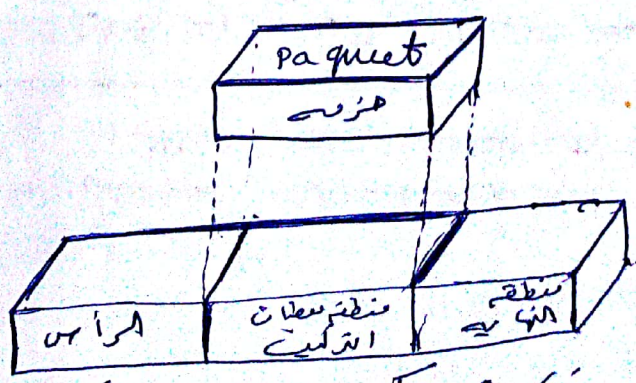 Paquet
حزمه
الرأس
منطقة معطيات
التركيب
منطقه
النهايه